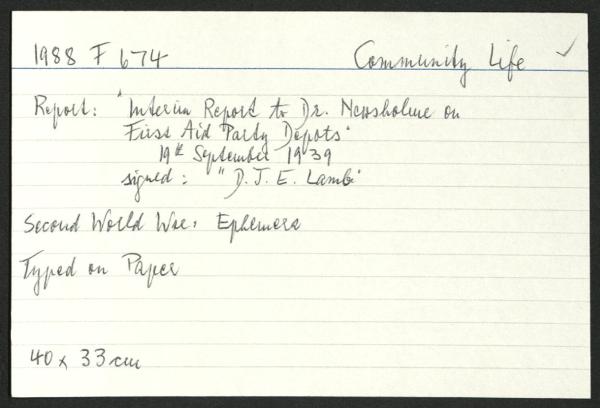 1988 F 674 Community Life ✓
Report: "Interim Report to Dr. Newsholme on
First Aid Party Depots"
19th September 1939
signed: "D.J.E. Lamb"
Second World War: Ephemera
Typed on Paper
40 x 33 cm